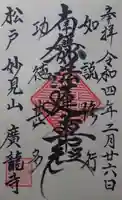 奉拝
令和四年二月廿六日
如説修行
南無妙法蓮華経
功徳甚多
松戸 妙見山 廣龍寺